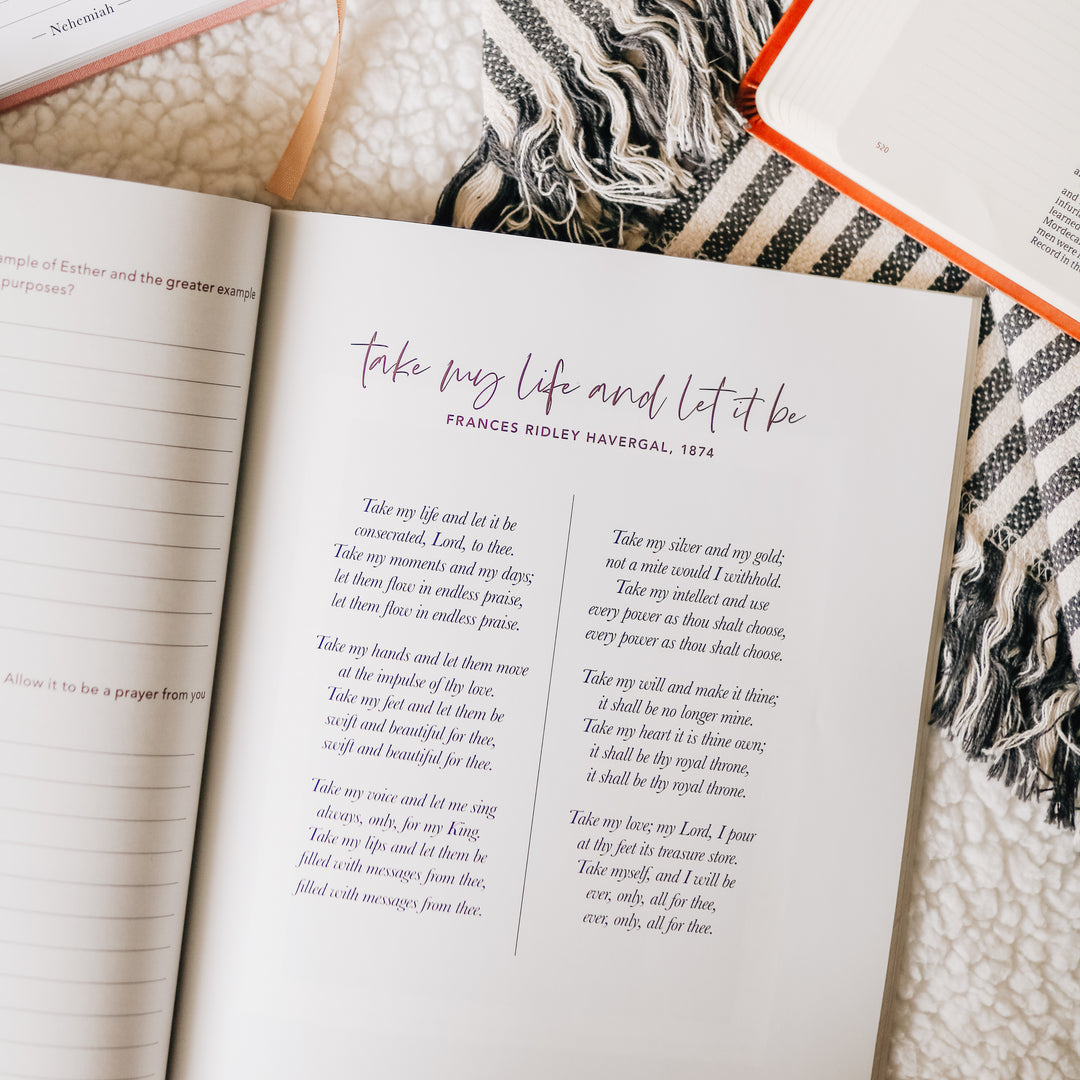 — Nehemiah —
ample of Esther and the greater example
purposes?
Allow it to be a prayer from you
take my life and let it be
FRANCES RIDLEY HAVERGAL, 1874
Take my life and let it be
consecrated, Lord, to thee.
Take my moments and my days;
let them flow in endless praise,
let them flow in endless praise.
Take my hands and let them move
at the impulse of thy love.
Take my feet and let them be
swift and beautiful for thee,
swift and beautiful for thee.
Take my voice and let me sing
always, only, for my King.
Take my lips and let them be
filled with messages from thee,
filled with messages from thee.
Take my silver and my gold;
not a mite would I withhold.
Take my intellect and use
every power as thou shalt choose,
every power as thou shalt choose.
Take my will and make it thine;
it shall be no longer mine.
Take my heart it is thine own;
it shall be thy royal throne,
it shall be thy royal throne.
Take my love; my Lord, I pour
at thy feet its treasure store.
Take myself, and I will be
ever, only, all for thee,
ever, only, all for thee.
520
and
infuri
learned
Mordeca
men were
Record in th